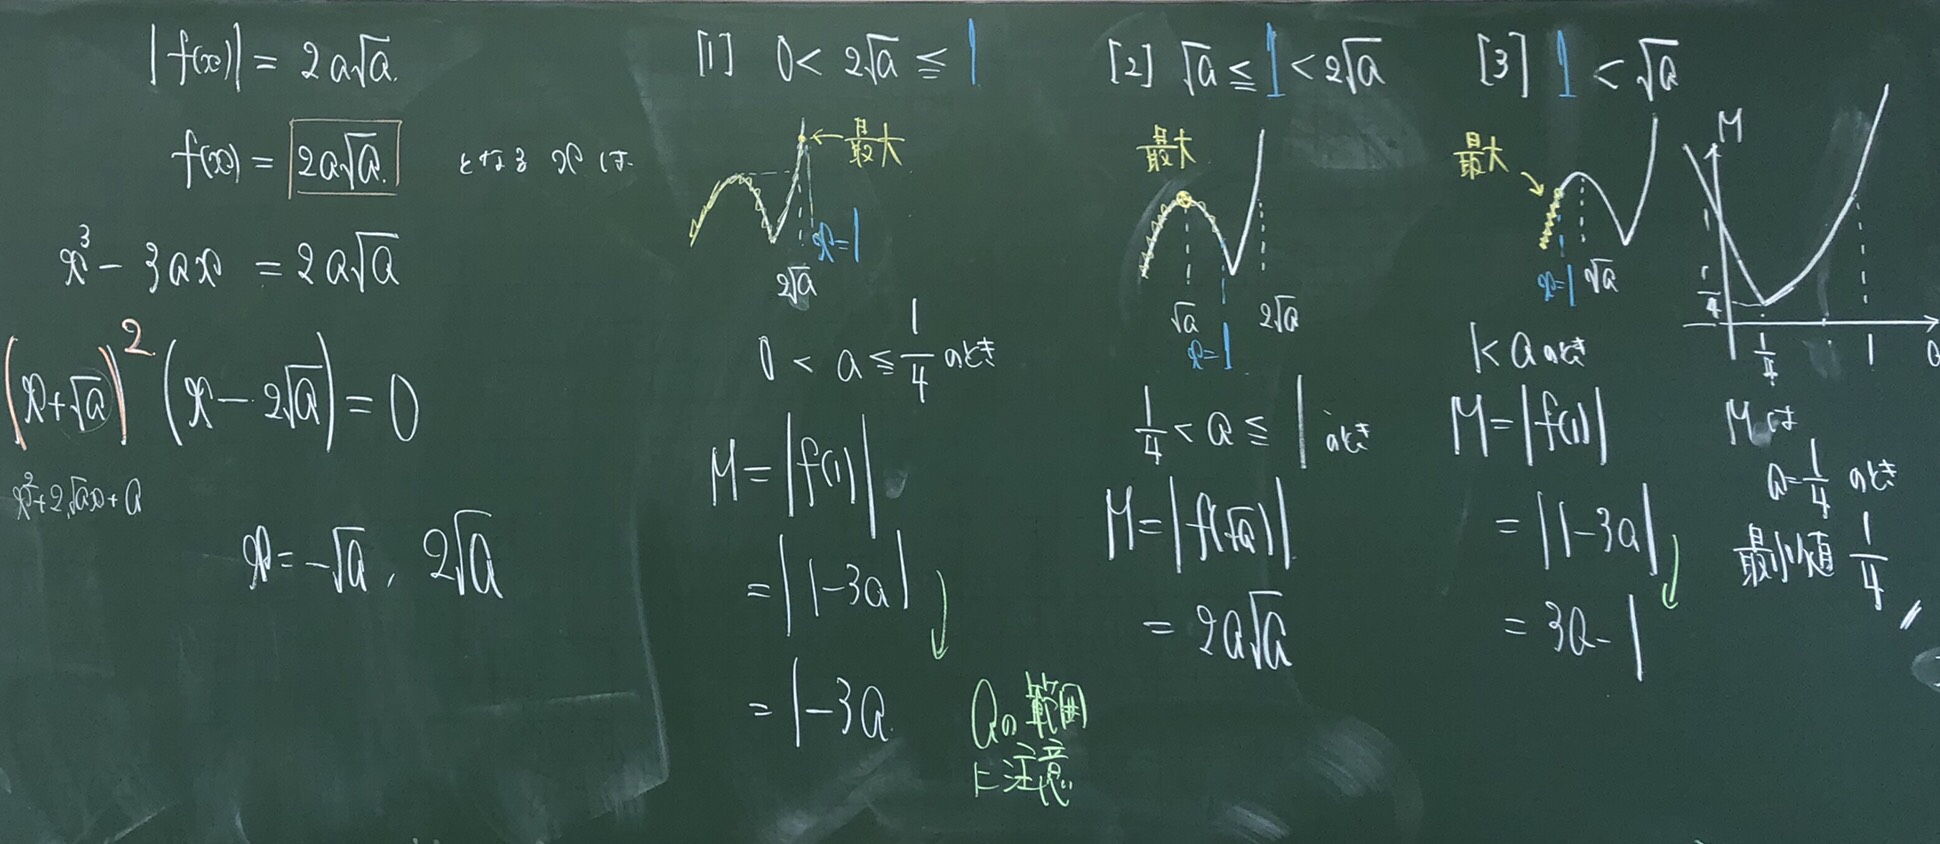 |f(x)| = 2a√a.
f(x) = 2a√a. となる x は
x³ - 3ax = 2a√a
(x+√a)² (x-2√a) = 0
x²+2√ax+a
x = -√a, 2√a
[1] 0 < 2√a ≦ 1
最大
x=1
2√a
0 < a ≦ 1/4 のとき
M = |f(1)|
= |1-3a|
= 1-3a
aの範囲
に注意
[2] √a ≦ 1 < 2√a
最大
√a 2√a
x=1
1/4 < a ≦ 1 のとき
M = |f(√a)|
= 2a√a
[3] 1 < √a
最大
x=1 √a
1<a のとき
M = |f(1)|
= |1-3a|
= 3a-1
M
1
1/4
1/4 1 a
Mは
a=1/4 のとき
最小値 1/4